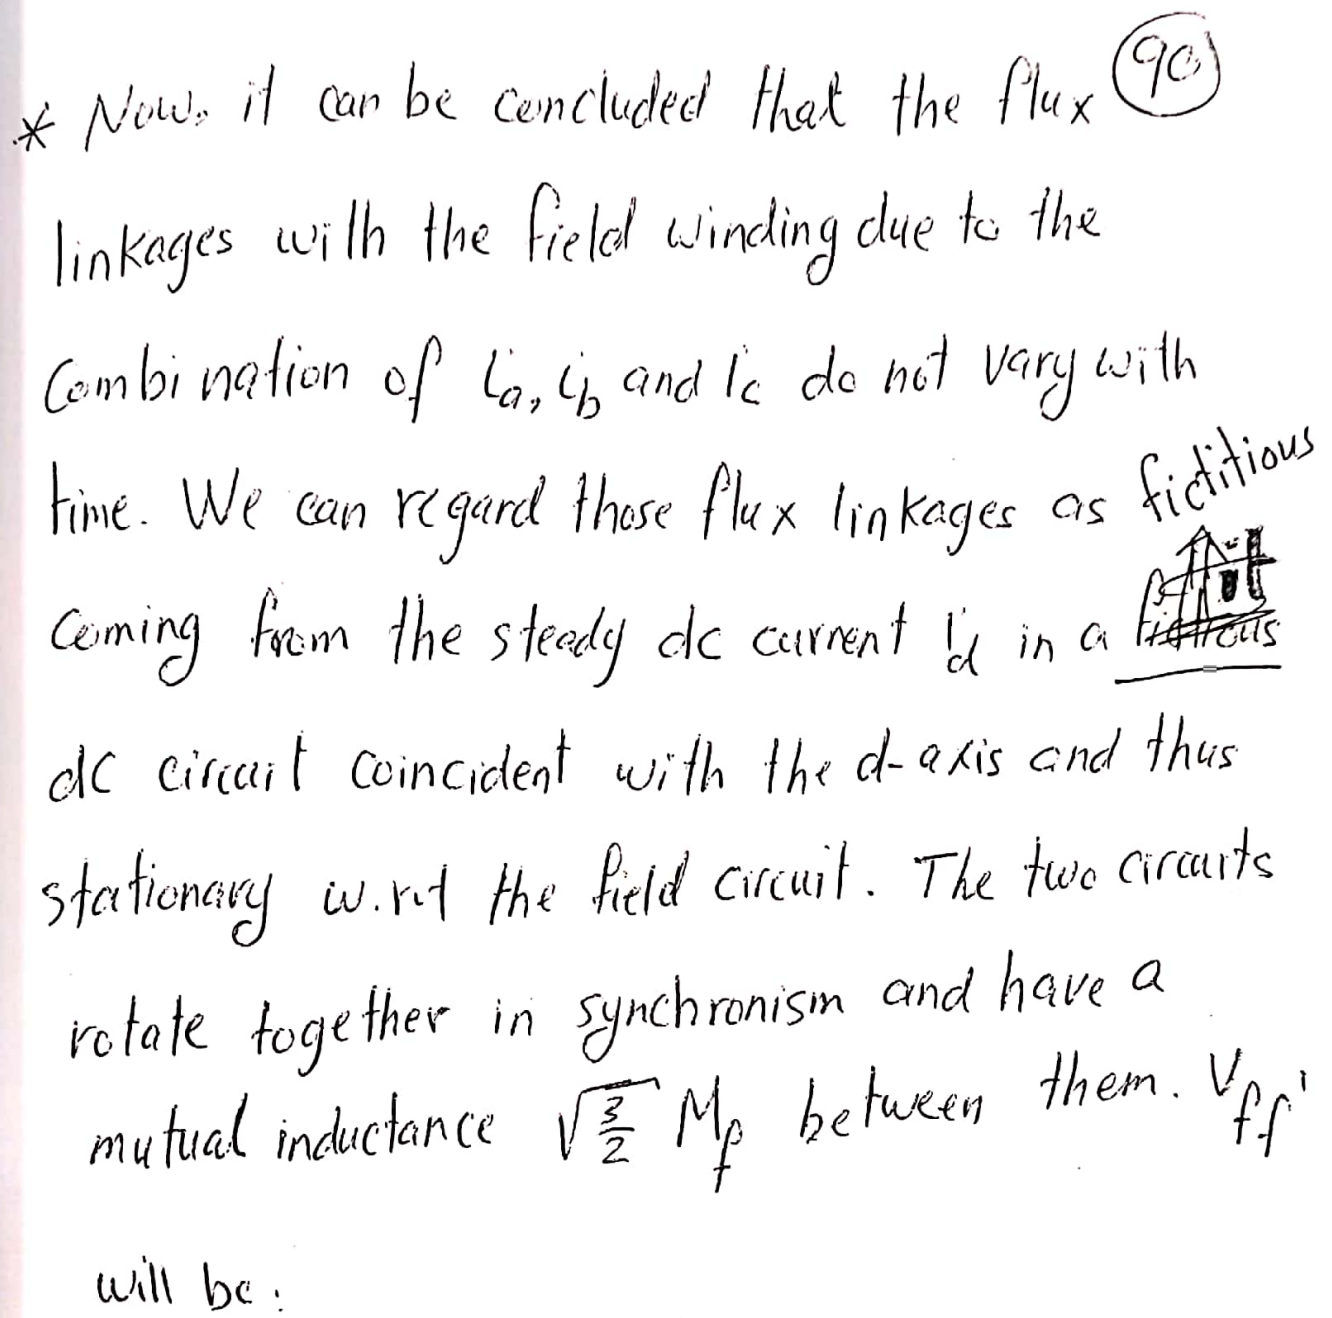 * Now, it can be concluded that the flux (90)
linkages with the field winding due to the
Combination of ia, ib and ic do not vary with
time. We can regard those flux linkages as fictitious
coming from the steady dc current id in a
dc circuit coincident with the d-axis and thus
stationary w.r.t the field circuit. The two circuits
rotate together in synchronism and have a
mutual inductance √3/2 Mf between them. Vff'
will be: